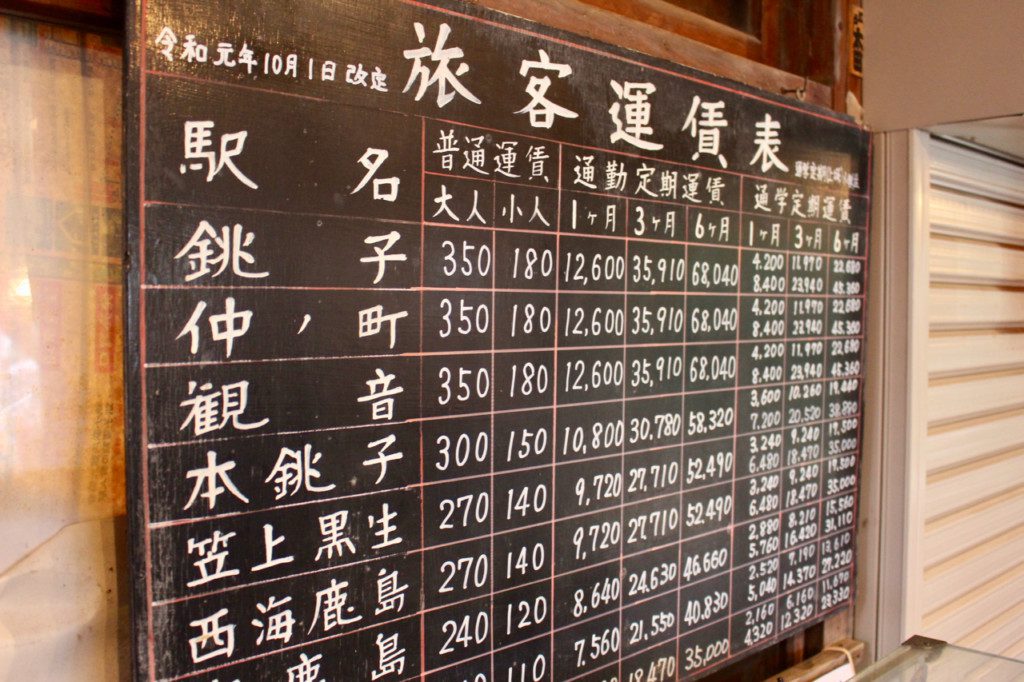 令和元年10月1日改定 旅客運賃表
駅名 普通運賃 通勤定期運賃 通学定期運賃
大人 小人 1ヶ月 3ヶ月 6ヶ月 1ヶ月 3ヶ月 6ヶ月
銚子 350 180 12,600 35,910 68,040 4,200 11,970 22,680
8,400 23,940 45,360
仲ノ町 350 180 12,600 35,910 68,040 4,200 11,970 22,680
8,400 45,360
観音 350 180 12,600 35,910 68,040 4,200 11,970 22,680
8,400 23,940 45,360
本銚子 300 150 10,800 30,780 58,320 3,600 10,260 19,440
7,200 20,520 38,880
笠上黒生 270 140 9,720 27,710 52,490 3,240 9,240 17,500
6,480 18,470 35,000
西海鹿島 270 140 9,720 27,710 52,490 3,240 9,240 17,500
6,480 18,470 35,000
鹿島 240 120 8,640 24,630 46,660 2,880 8,210 15,560
5,760 16,420 31,110
110 7,560 21,550 40,830 2,520 7,190 13,610
5,040 14,370 27,220
18,470 35,000 2,160 6,160 11,670
4,320 12,320 23,330